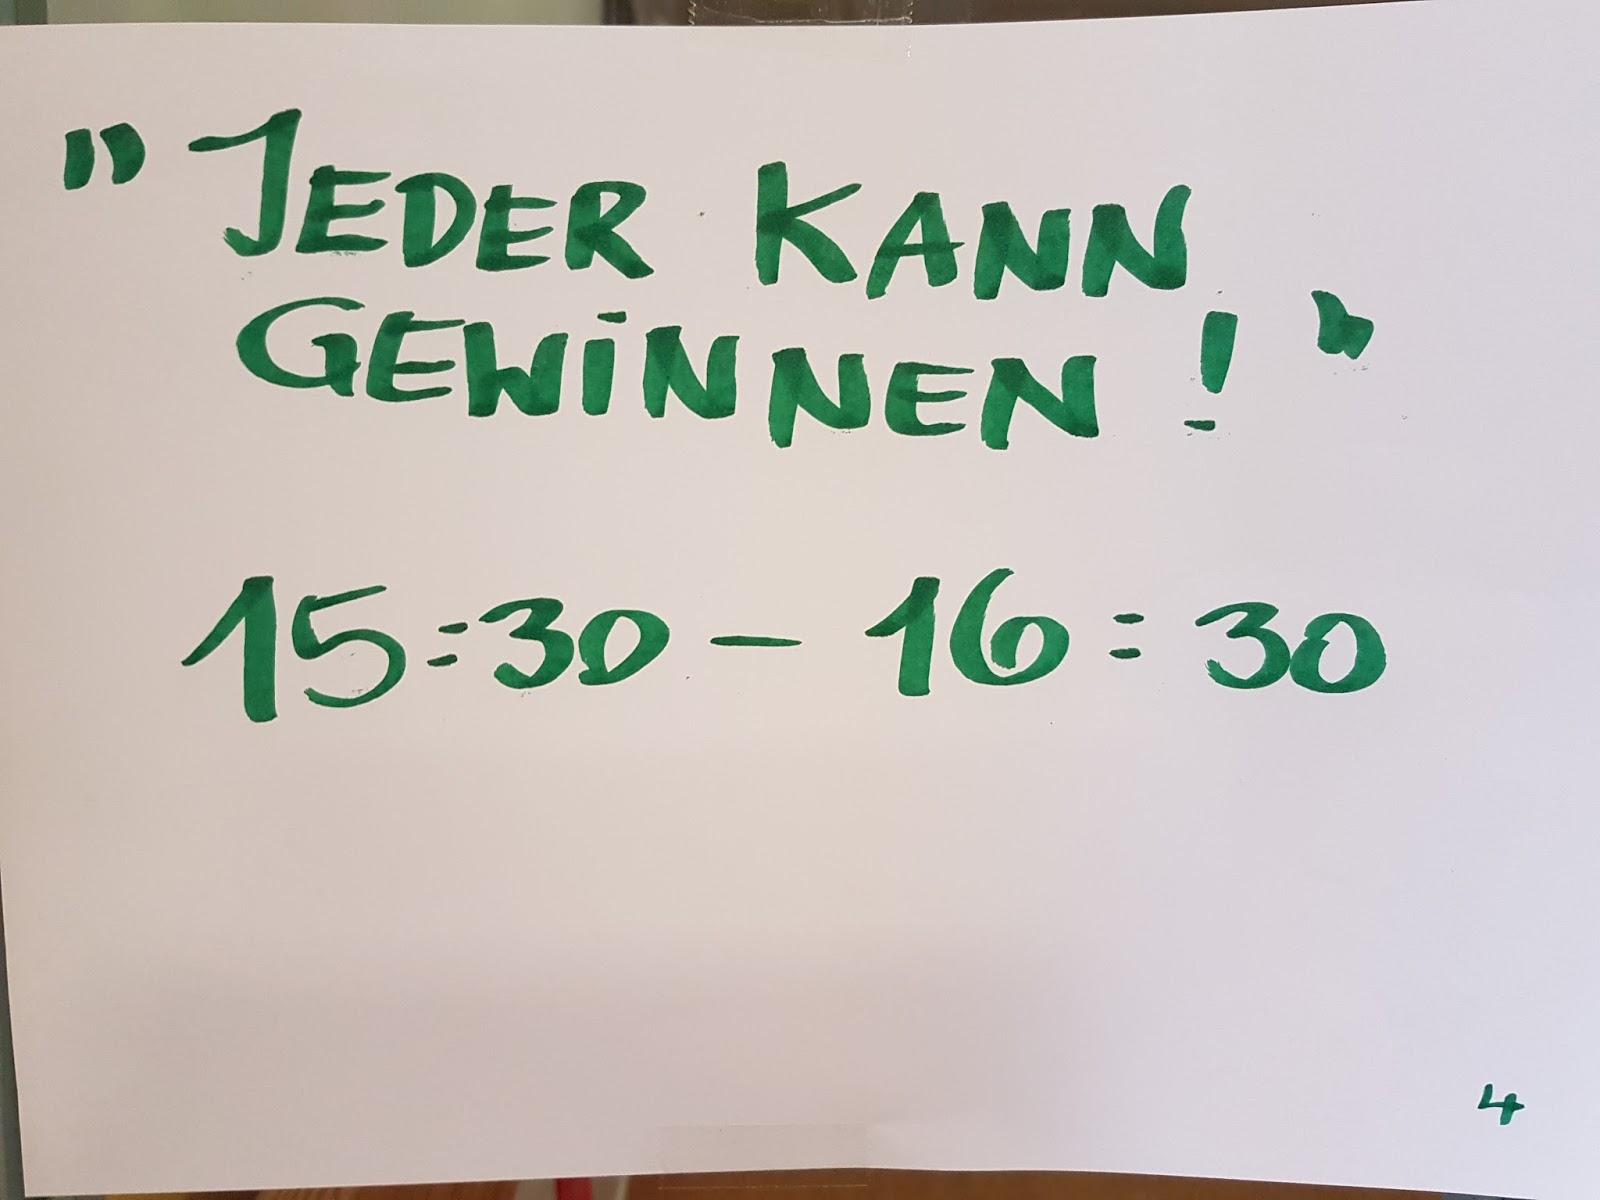 "JEDER KANN
GEWINNEN!"
15:30 - 16:30
4